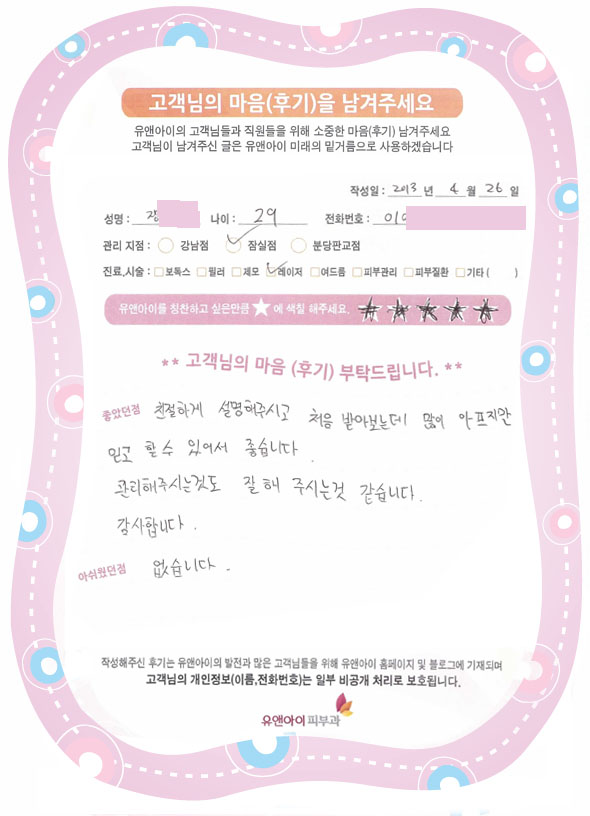 고객님의 마음(후기)을 남겨주세요
유앤아이의 고객님들과 직원들을 위해 소중한 마음(후기) 남겨주세요
고객님이 남겨주신 글은 유앤아이 미래의 밑거름으로 사용하겠습니다
작성일 : 2013 년 4 월 26 일
성명 : 나이 : 29 전화번호 : 010
관리 지점 : 강남점 잠실점 분당판교점
진료,시술 : 보톡스 필러 제모 레이저 여드름 피부관리 피부질환 기타 ( )
유앤아이를 칭찬하고 싶은만큼 ★에 색칠 해주세요. ★★★★★
** 고객님의 마음 (후기) 부탁드립니다. **
좋았던점 친절하게 설명해주시고 처음 받아보는데 많이 아프지안
믿고 할 수 있어서 좋습니다.
관리해주시는것도 잘 해 주시는것 같습니다.
감사합니다.
아쉬웠던점 없습니다.
작성해주신 후기는 유앤아이의 발전과 많은 고객님들을 위해 유앤아이 홈페이지 및 블로그에 기재되며
고객님의 개인정보(이름,전화번호)는 일부 비공개 처리로 보호됩니다.
유앤아이 피부과